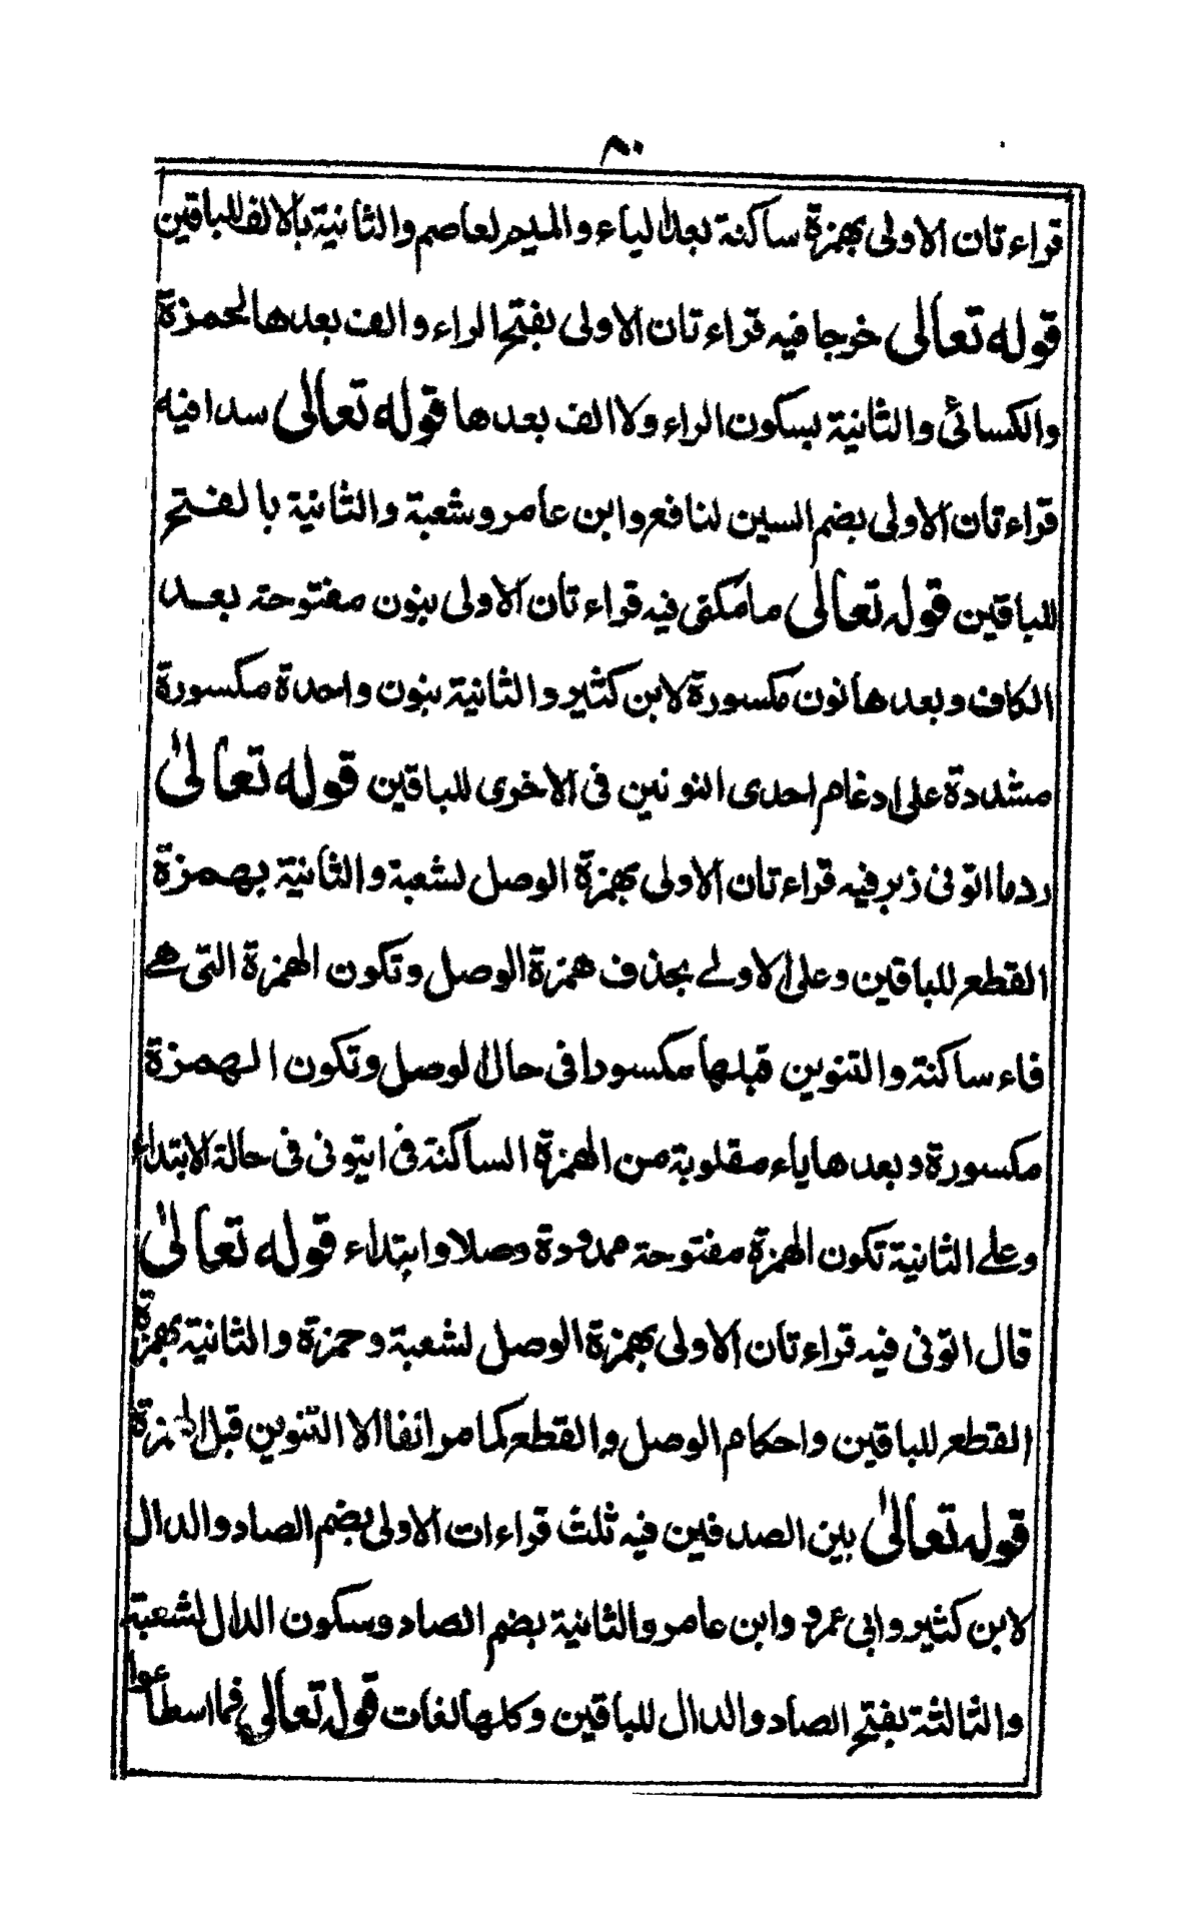 ٨٠
قراءتان الاولى بهمزة ساكنة بعد الياء والميم لعاصم والثانية بالالف للباقين
قوله تعالى خرجا فيه قراءتان الاولى بفتح الراء والف بعدها لحمزة
والكسائى والثانية بسكون الراء ولا الف بعدها قوله تعالى سدا فيه
قراءتان الاولى بضم السين لنافع وابن عامر وشعبة والثانية بالفتح
للباقين قوله تعالى ما مكنى فيه قراءتان الاولى بنون مفتوحة بعد
الكاف وبعدها نون مكسورة لابن كثير والثانية بنون واحدة مكسورة
مشددة على ادغام احدى النونين فى الاخرى للباقين قوله تعالىٰ
ردما اتونى زبر فيه قراءتان الاولى بهمزة الوصل لشعبة والثانية بهمزة
القطع للباقين وعلى الاولے بحذف همزة الوصل وتكون الهمزة التى هے
فاء ساكنة والتنوين قبلها مكسورا فى حال الوصل وتكون الهمزة
مكسورة وبعدها ياء مقلوبة من الهمزة الساكنة فى ايتونى فى حالة الابتداء
وعلے الثانية تكون الهمزة مفتوحة ممدودة وصلا وابتداء قوله تعالىٰ
قال اتونى فيه قراءتان الاولى بهمزة الوصل لشعبة وحمزة والثانية بهمزة
القطع للباقين واحكام الوصل والقطع كما مر انفا الا التنوين قبل الهمزة
قوله تعالىٰ بين الصدفين فيه ثلث قراءات الاولى بضم الصاد والدال
لابن كثير وابى عمرو وابن عامر والثانية بضم الصاد وسكون الدال لشعبة
والثالثة بفتح الصاد والدال للباقين وكلها لغات قوله تعالى فما اسطاعوا